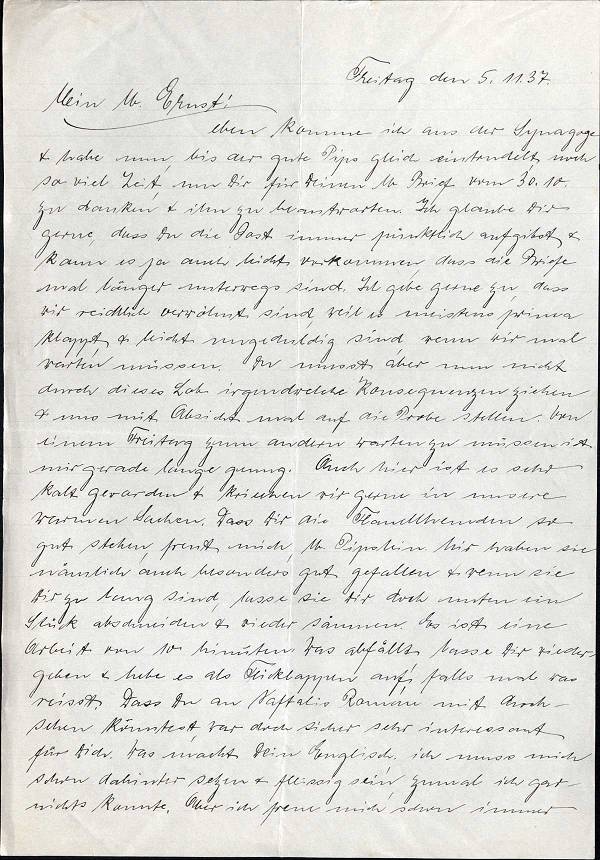 Freitag den 5.11.37.
Mein lb. Ernst!
eben komme ich aus der Synagoge
& habe nun, bis der gute Pips gleich eintrudelt noch
so viel Zeit, um Dir für Deinen lb Brief vom 30.10.
zu danken & ihn zu beantworten. Ich glaube Dir
gerne, dass Du die Post immer pünktlich aufgibst &
kann es ja auch leicht vorkommen, dass die Briefe
mal länger unterwegs sind. Ich gebe gerne zu, dass
wir reichlich verwöhnt sind, weil es meistens prima
klappt & leicht ungeduldig sind wenn wir mal
warten müssen. Du musst aber nun nicht
durch dieses Lob irgendwelche Konsequenzen ziehen
& uns mit Absicht mal auf die Probe stellen. Von
einem Freitag zum andern warten zu müssen ist
mir gerade lange genug. Auch hier ist es sehr
kalt geworden & kriechen wir gerne in unsere
warmen Sachen. Dass Dir die Flanellhemden so
gut stehen freut mich, lb Pipslein mir haben sie
nämlich auch besonders gut gefallen & wenn sie
Dir zu lang sind, lasse sie Dir doch unten ein
Stück abschneiden & wieder säumen. Es ist eine
Arbeit von 10 Minuten Was abfällt lasse Dir wieder
geben & hebe es als Flicklappen auf, falls mal was
reisst. Dass Du an Naftalis Romane mit
sehen könntest war doch sicher sehr interessant
für Dich. Was macht Dein Englisch. ich muss mich
schon dahinter setzen & fleissig sein, zumal ich gar-
nichts konnte. Aber ich freue mich schon immer